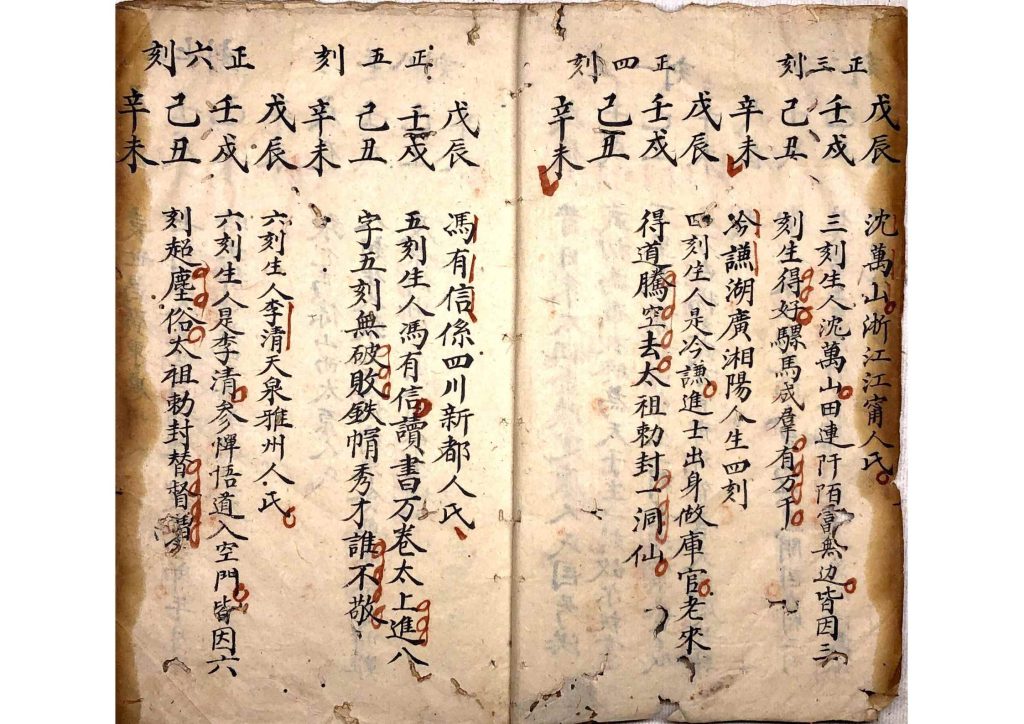 正三刻
戊辰 沈萬山浙江江甯人氏
壬戍 三刻生人沈萬山田連阡陌富無边皆因三
己丑 刻生得好騾馬成羣有万千
辛未 冷謙湖廣湘陽人生四刻
正四刻
戊辰 四刻生人是冷謙進士出身做庫官老來
壬戍 得道騰空去太祖勅封一洞仙
己丑
辛未
正五刻
戊辰 馮有信係四川新都人氏
壬戍 五刻生人馮有信讀書万卷太上進八
己丑 字五刻無破敗鉄帽秀才誰不敬
辛未
正六刻
戊辰 六刻生人李清天泉雅州人氏
壬戍 六刻生人是李清参憚悟道入空門皆因六
己丑 刻超塵俗太祖勅封替督清
辛未